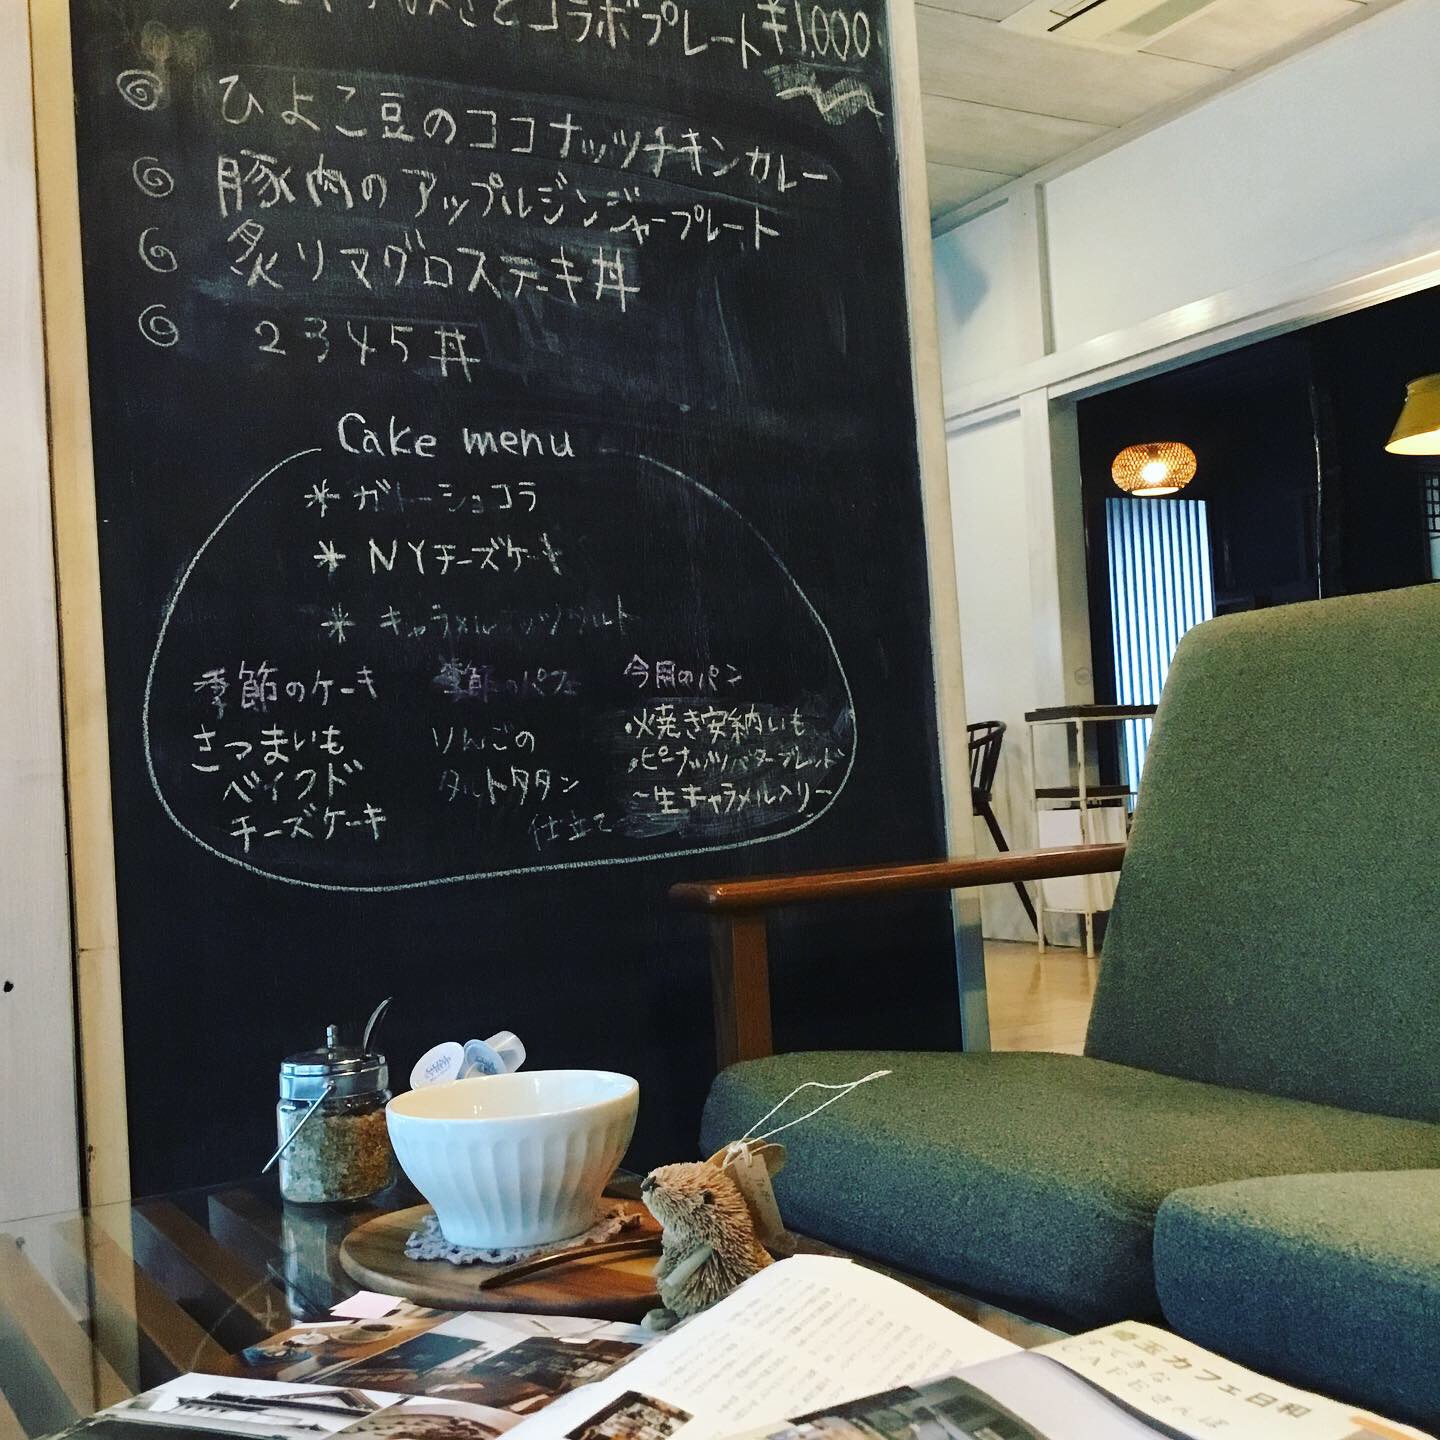 コラボプレート ¥1,000
ひよこ豆のココナッツチキンカレー
豚肉のアップルジンジャープレート
炙りマグロステーキ丼
2345丼
Cake menu
* ガトーショコラ
* NYチーズケーキ
* キャラメルナッツタルト
季節のケーキ
さつまいも
ベイクド
チーズケーキ
季節のパフェ
りんごの
タルトタタン
仕立て
今月のパン
・焼き安納いも
・ピーナッツバターブレッド
〜生キャラメル入り〜
埼玉カフェ日和
すてきな
CAFEさんぽ